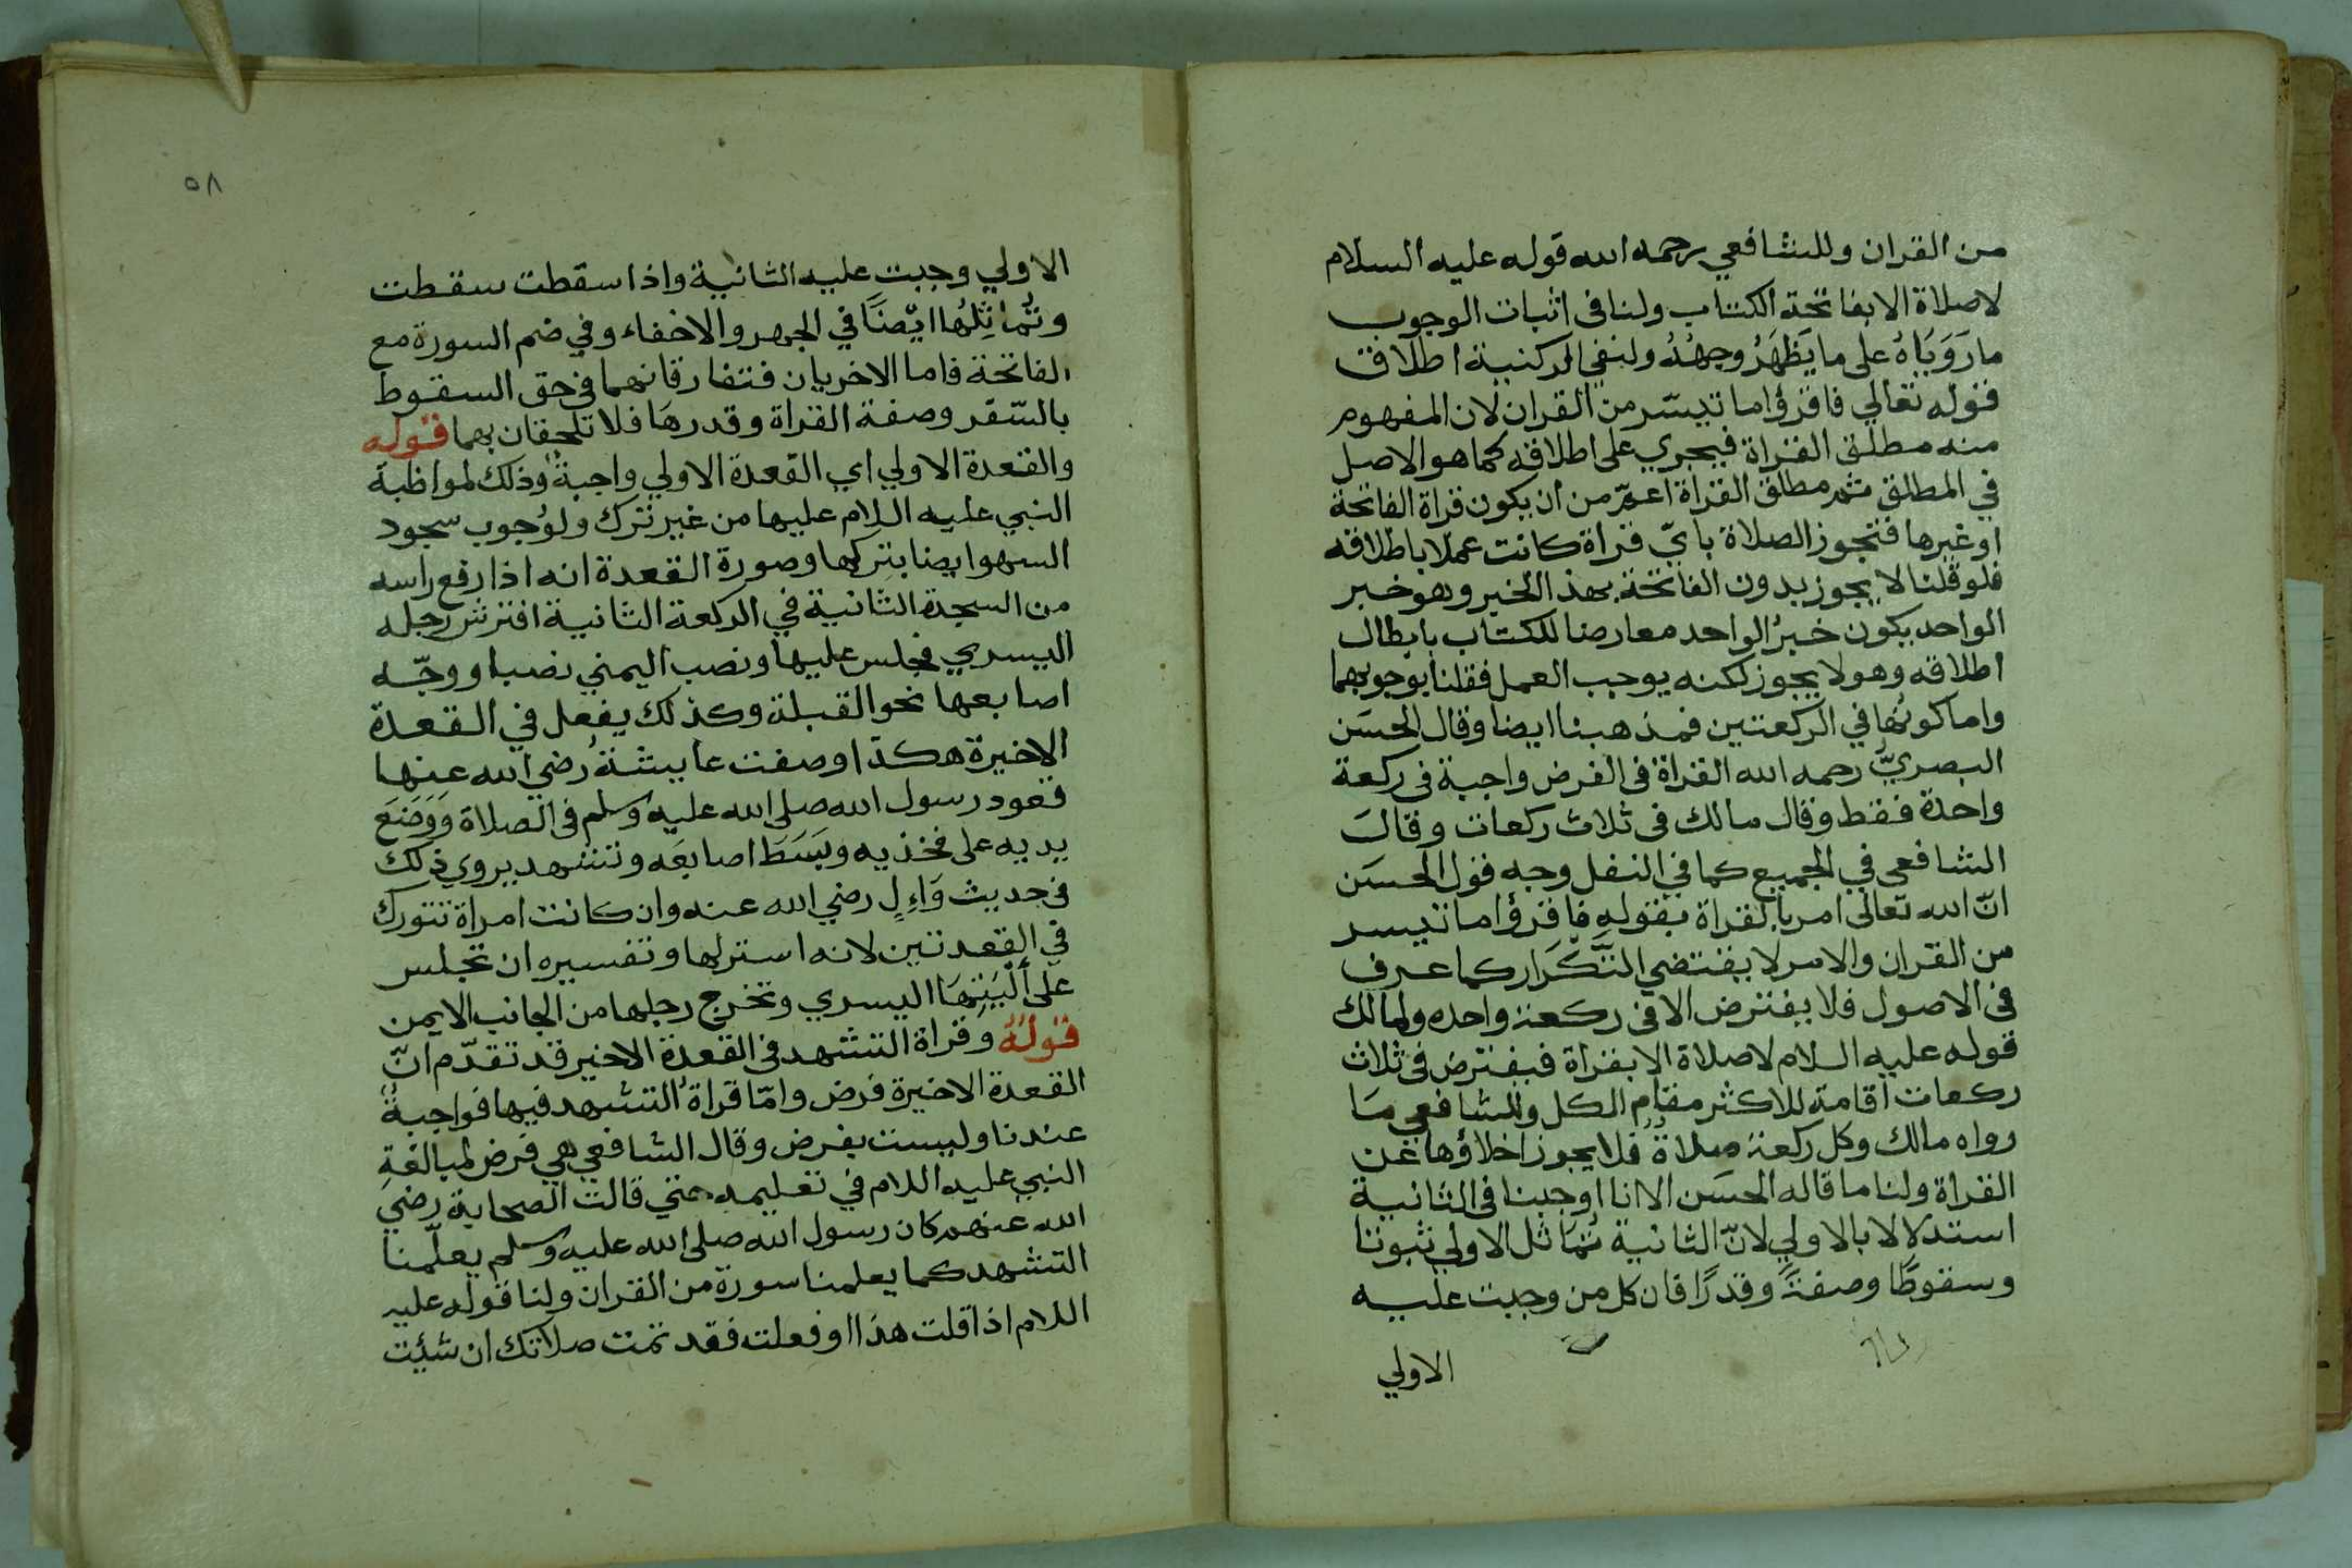 من القران وللشافعي رحمه الله قوله عليه السلام
لاصلاة الابفاتحة الكتاب ولنا في اثبات الوجوب
مارَوَيَاهُ على ما يَظهَرُ وجهُهُ ولنفي الركنية اطلاق
قوله تعالي فاقرؤا ما تيسّر من القران لان المفهوم
منه مطلق القراة فيجري على اطلاقه كما هو الاصل
في المطلق ثم مطلق القراة اعمّ من ان يكون قراة الفاتحة
اوغيرها فتجوز الصلاة بايّ قراة كانت عملا باطلاقه
فلو قلنا لا يجوز بدون الفاتحة بهذا الخبر وهو خبر
الواحد يكون خبرُ الواحد معارضا للكتاب بابطال
اطلاقه وهو لا يجوز لكنه يوجب العمل فقلنا بوجوبهما
واما كونُها في الركعتين فمذهبنا ايضا وقال الحسَن
البصريُّ رحمه الله القراة في الفرض واجبة في ركعة
واحدة فقط وقال مالك في ثلاث ركعات وقالَ
الشافعي في الجميع كما في النفل وجه قول الحسَن
انّ الله تعالى امر بالقراة بقوله فاقرؤا ما تيسر
من القران والامر لا يقتضي التَّكرَار كما عرف
في الاصول فلا يفترض الا في ركعة واحده ولمالك
قوله عليه السلام لاصلاة الا بقراة فيفترض في ثلاث
ركعات اقامة للاكثر مقام الكل وللشافعي مَا
رواه مالك وكل ركعة صلاةٌ فلا يجوز اخلاؤها عن
القراة ولنا ما قاله الحسَن الا انا اوجبنا في الثانية
استدلالا بالاولي لانّ الثانية تُمَاثل الاولي ثبوتا
وسقوطًا وصفةً وقدرًا فان كل من وجبت عليه
الاولي
٥٨
الاولي وجبت عليه الثانية واذا سقطت سقطت
وتُماثِلُها ايّضَا في الجهر والاخفاء وفي ضم السورة مع
الفاتحة فاما الاخريان فتفارقانهما في حق السقوط
بالسّفر وصفة القراة وقدرهَا فلا تلحقان بهما قوله
والقعدة الاولي اي القعدة الاولي واجبةٌ وذلك لمواظبة
النبي عليه اللام عليها من غير ترك ولوُجوب سجود
السهو ايضا بتركها وصورة القعدة انه اذا رفع راسه
من السجدة الثانية في الركعة الثانية افترش رجله
اليسري فجلس عليها ونصب اليمني نصبا ووجّه
اصابعها نحو القبلة وكذلك يفعل في القعدة
الاخيرة هكذا وصفت عايشةُ رضي الله عنها
قعود رسول الله صلى الله عليه وسلم في الصلاة وَوَضَعَ
يديه على فخذيه وبَسَطَ اصابعَه وتشهد يروي ذلك
في حديث وَاءِلٍ رضي الله عنه وان كانت امراة تتورك
في القعدتين لانه استرلها وتفسيره ان تجلس
على أَلْيَتِهَا اليسري وتخرج رجلها من الجانب الايمن
قولهُ وقراة التشهد في القعدة الاخير قد تقدّم انّ
القعدة الاخيرة فرض وامّا قراةُ التشهد فيها فواجبةٌ
عندنا وليست بفرض وقال الشافعي هي فرض لمبالغةِ
النبي عليه اللام في تعليمه حتي قالت الصحابة رضي
الله عنهم كان رسول الله صلى الله عليه وسلم يعلّمنا
التشهد كما يعلمنا سورة من القران ولنا قوله عليه
اللام اذا قلت هذا او فعلت فقد تمت صلاتك ان شئِت